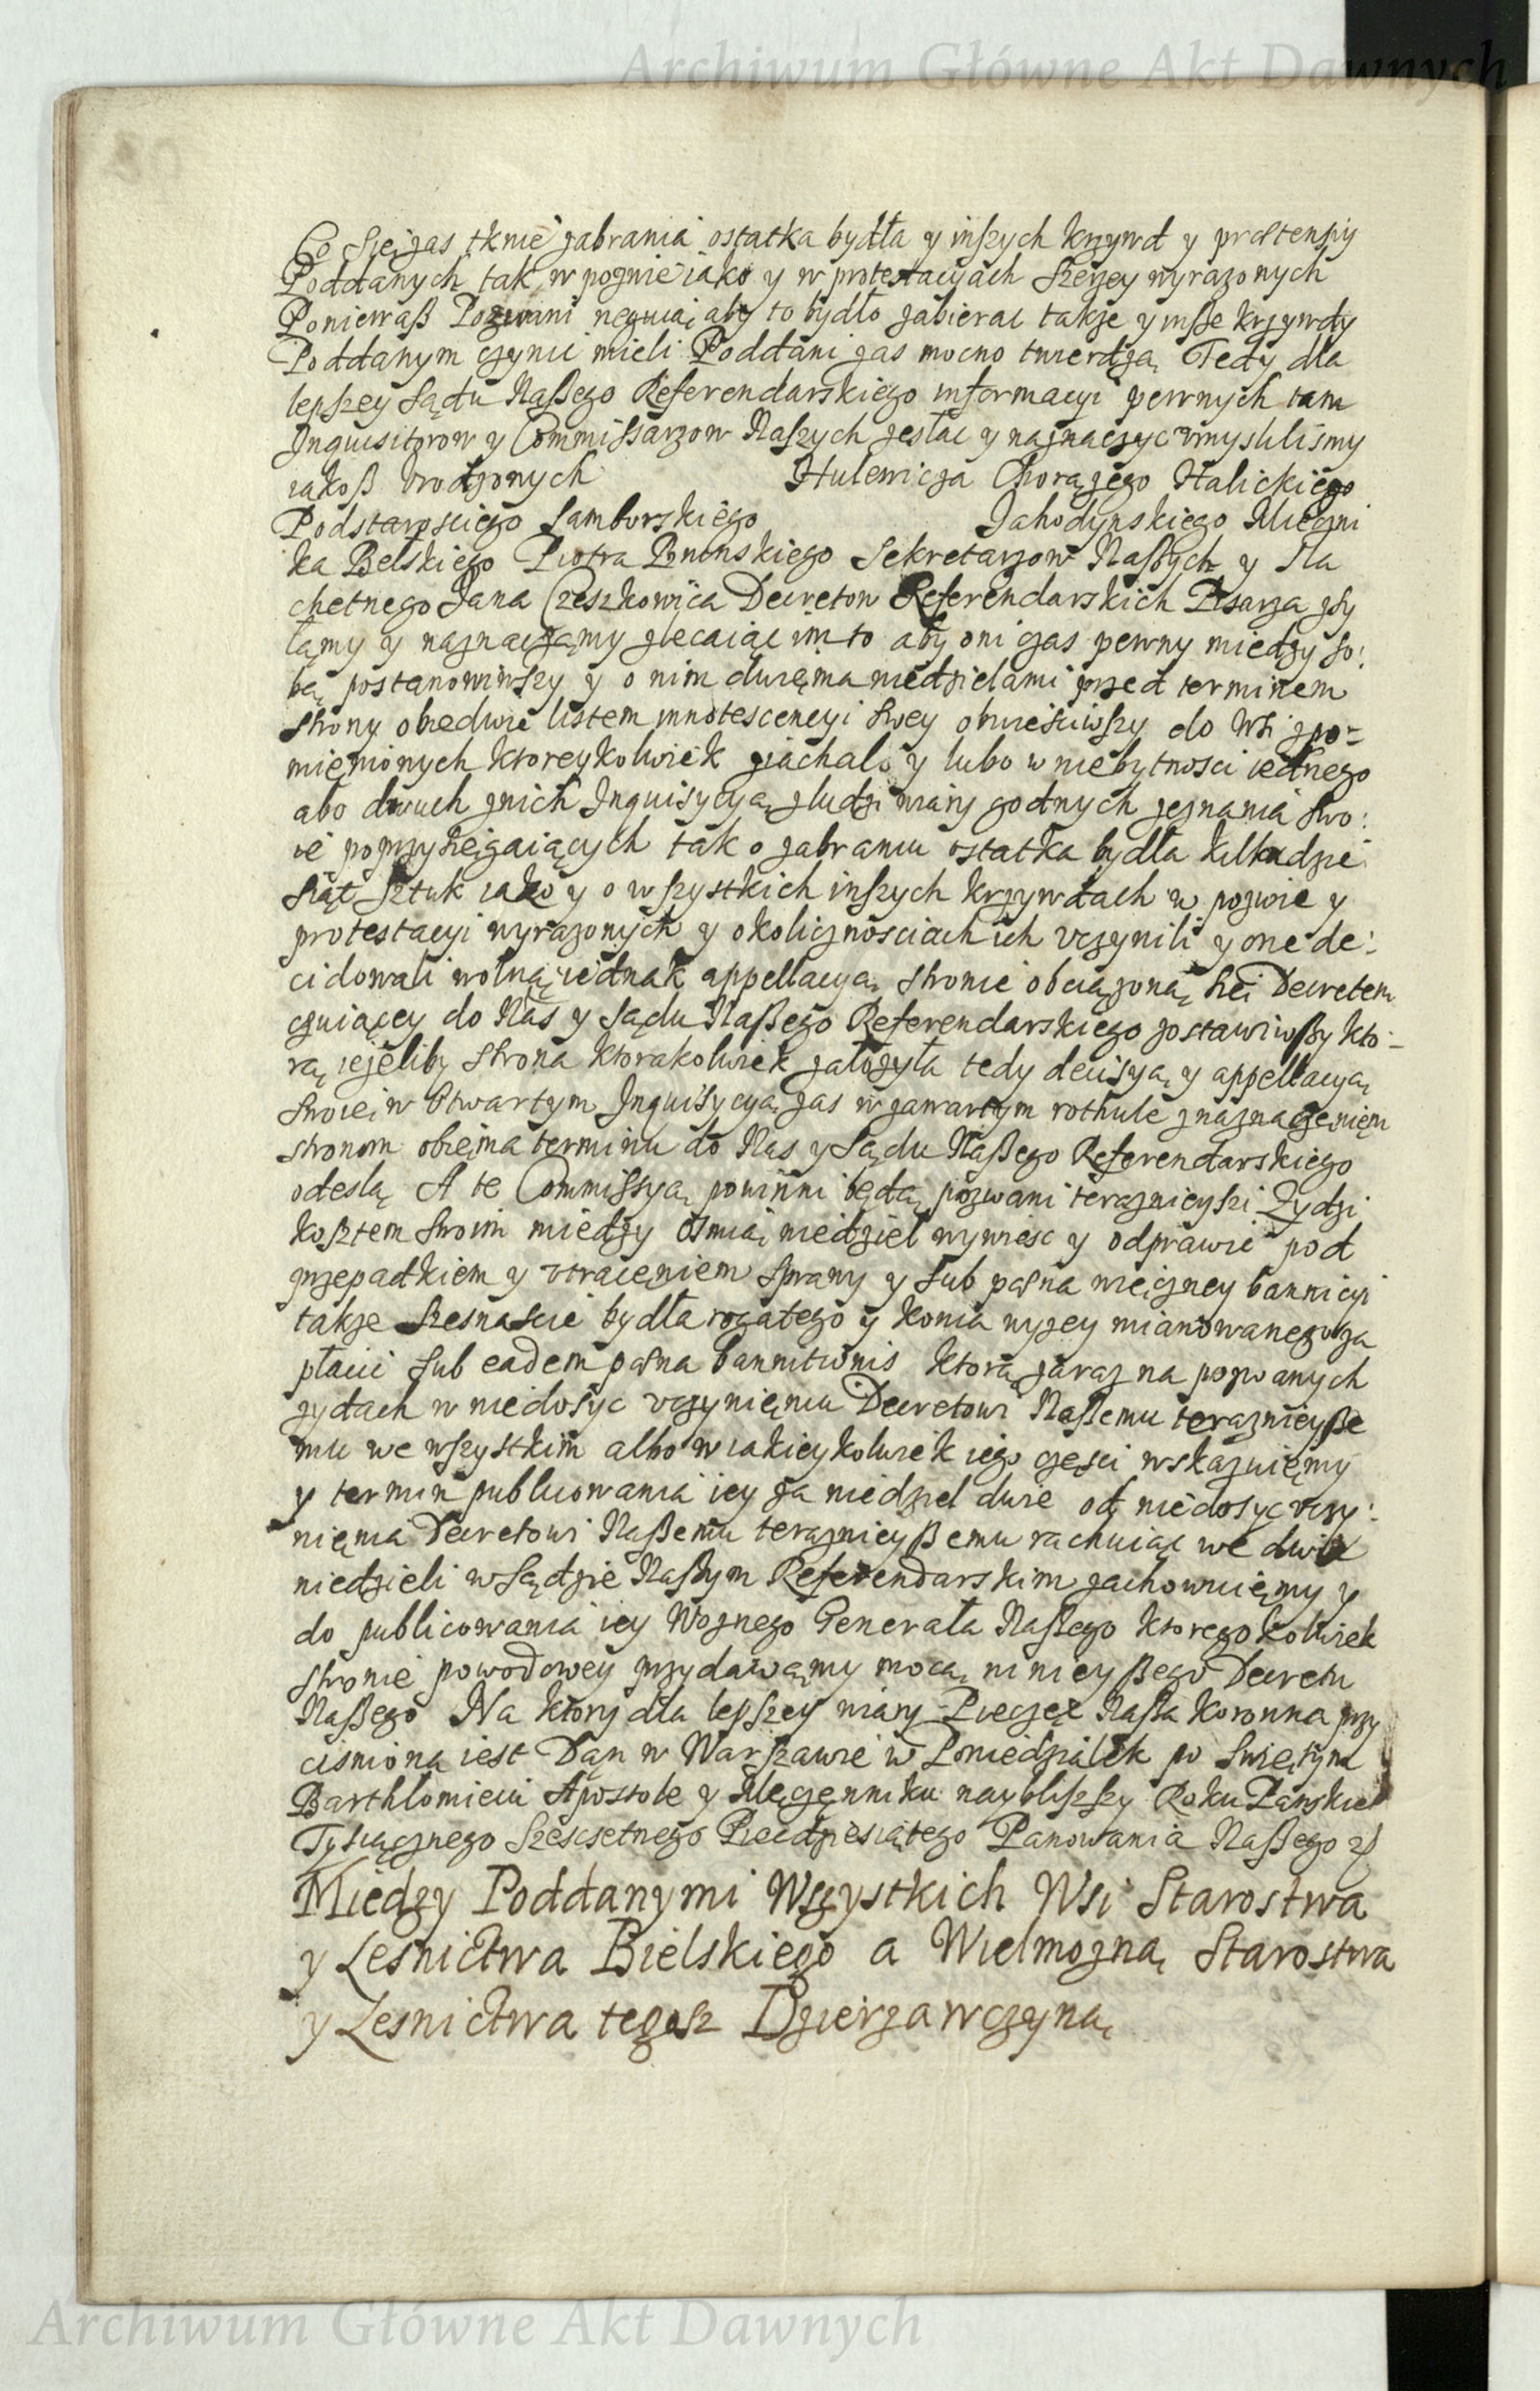 Archiwum Główne Akt Dawnych
Co się zas tknie zabrania ostatka bydła y inszych krzywd y praetensiy
Poddanych tak w pozwie iako y w protestacyach szerzey wyrazonych
Poniewaß Pozwani neguią aby to bydło zabierac takze y inße krzywdy
Poddanym czynic mieli Poddani zas mocno twierdzą Tedy dla
lepszey Sądu Naßego Referendarskiego informacyi pewnych tam
Inquisitorow y Commissarzow Naszych zesłac y naznaczyc umyslilismy
iakoß Urodzonych Hulewicza Chorązego Halickiego
Podstarosciego Samborskiego Jahodynskiego Mieczni
ka Belskiego Piotra Sekretarzow Naßych y Sla
chetnego Jana Czeszkowica Decretow Referendarskich Pisarza zsy
łamy y naznaczamy zlecaiąc im to aby oni czas pewny miedzy so:
bą postanowiwszy y o nim dwięma niedzielami przed terminem
strony obiedwie listem innotescencyi swey obwieściwszy do Wsi zpo=
mięnionych ktoreykolwiek ziachali y lubo w niebytnosci iednego
abo dwuch znich Inquisycyą zludzi wiary godnych zeznania swo:
ie poprzysięgaiących tak o zabraniu ostatka bydła kilkudzie:
siąt sztuk iako y o wszystkich inszych krzywdach w pozwie y
protestacyi wyrazonych y okolicznosciach ich uczynili y one de:
cidowali wolną iednak appellacyą stronie obciązoną się Decretem
czuiącey do Nas y Sądu Naßego Referendarskiego zostawiwßy kto=
rą iezeliby strona ktorakolwiek załozyła tedy decisyą y appellacyą
swoię w Otwartym Inquisycyą zas w zawartym rothule znaznaczęnięm
stronom obięma terminu do Nas y Sądu Naßego Referendarskiego
odeslą A te Commissyą powinni będą pozwani teraznieyszi Zydzi
kosztem swoim miedzy osmią niedziel wywiesc y odprawic pod
przepadkiem y utracęniem sprawy y sub paena wieczney bannicyi
takze szesnascie bydła rogatego y konia wyzey mianowanego za
płacic sub eadem paena bannitionis ktorą zaraz na pozwanych
zydach w niedosyc uczynięniu Decretowi Naßemu teraznieyße
mu we wszystkim albo w iakieykolwiek iego częsci wskazuięmy
y termin publicowania iey za niedziel dwie od niedosyc uczy:
nięnia Decretowi Naßemu teraznieyßemu rachuiąc we dwie
niedzieli w Sądzie Naßym Referendarskim zachowuięmy y
do publicowania iey Woznego Generała Naßego ktoregokolwiek
stronie powodowey przydawamy mocą ninieyßego Decretu
Naßego Na ktory dla lepszey wiary Pieczęć Naßa Koronna przy
cisniona iest Dan w Warszawie w Poniedziałek po Swiętym
Barthłomieiu Apostole y Męczęnniku naybliższy Roku Panskie
Tysiącznego Szescsetnego Piecdziesiątego Panowania Naßego
Między Poddanymi Wszystkich Wsi Starostwa
y Lesnictwa Bielskiego a Wielmozną Starostwa
y Lesnictwa tegosz Dzierzawczyną
Archiwum Główne Akt Dawnych